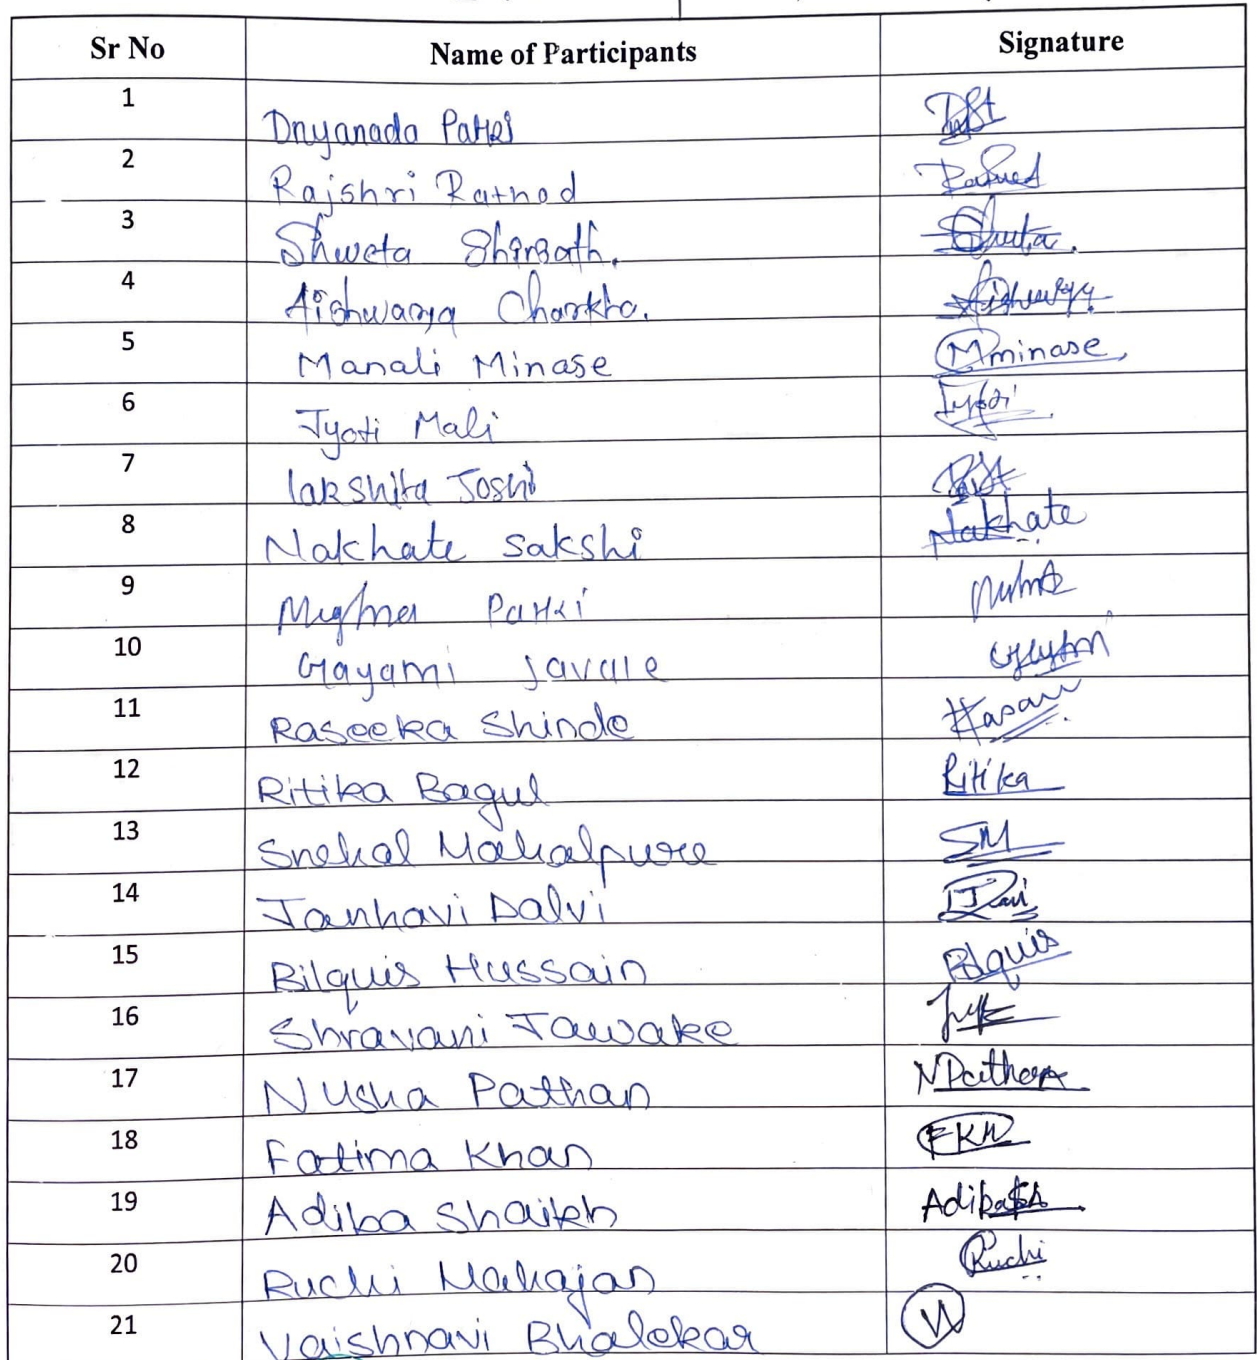 Sr No Name of Participants Signature
1 Dnyanada Patki
2 Rajshri Rathod
3 Shweta Shirsath. Shweta.
4 Aishwarya Charkha. Aishwarya
5 Manali Minase Mminase
6 Jyoti Mali Jyoti
7 lakshita Joshi
8 Nakhate Sakshi Nakhate
9 Patki
10 Gayatri Javale
11 Raseeka Shinde
12 Ritika Bagul Ritika
13 Snehal Mahalpure SM
14 Janhavi Dalvi
15 Bilquis Hussain Bilquis
16 Shravani Jawake
17 Nusha Pathan NPathan
18 Fatima Khan
19 Adiba Shaikh
20 Ruchi Mahajan Ruchi
21 Vaishnavi Bhalekar